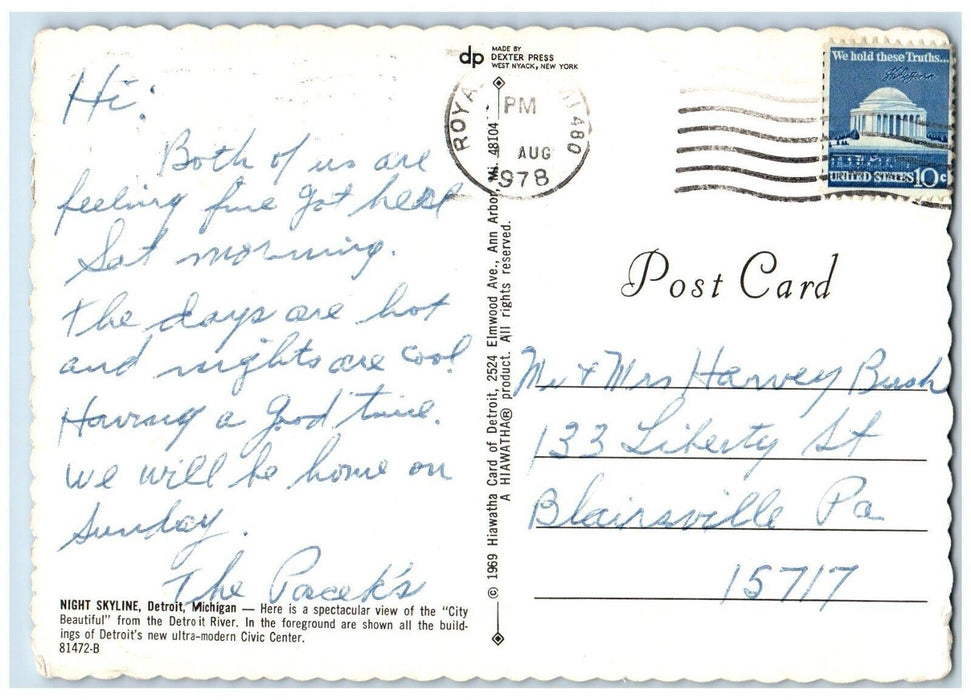 dp MADE BY
DEXTER PRESS
WEST NYACK, NEW YORK
We hold these Truths...
UNITED STATES 10c
ROYA
MI 480
PM
AUG
1978
Hi:
Both of us are
feeling fine got here
Sat morning.
The days are hot
and nights are cool.
Having a good time.
we will be home on
Sunday.
The Pacek's
NIGHT SKYLINE, Detroit, Michigan — Here is a spectacular view of the "City
Beautiful" from the Detroit River. In the foreground are shown all the build-
ings of Detroit's new ultra-modern Civic Center.
81472-B
© 1969 Hiawatha Card of Detroit, 2524 Elmwood Ave., Ann Arbor, Mi. 48104
A HIAWATHA® product. All rights reserved.
Post Card
Mr & Mrs Harvey Bush
133 Liberty St
Blairsville Pa
15717